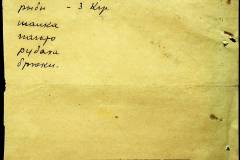 рыбы - 3 кгр.
шапка
пальто
рубаха
брюки.